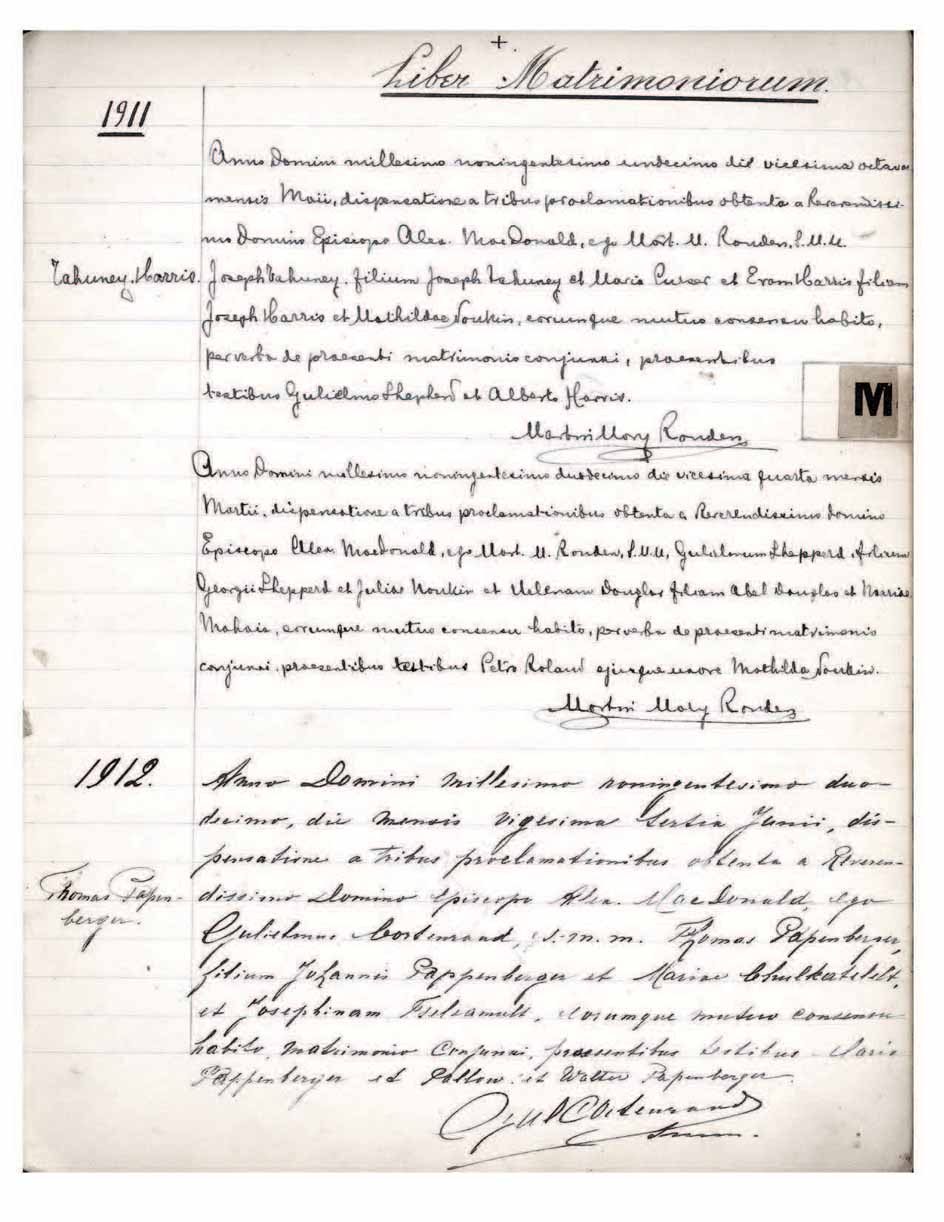 +
Liber Matrimoniorum.
1911
Anno Domini millesimo noningentesimo undecimo die vicesima octava
mensis Maii, dispensatione a tribus proclamationibus obtenta a Reverendissi-
mo Domino Episcopo Alex. MacDonald, ego Mart. M. Ronden, S.M.M.
Tahuney. Harris. Joseph Tahuney. filium Joseph Tahuney et Maria et Harris filiam
Joseph Harris et Mathildae Soukin, eorumque mutuo consensu habito,
per verba de praesenti matrimonio conjunxi, praesentibus
testibus Gulielmo Shepherd et Alberto Harris.
M
Martin Mary Ronden
Anno Domini millesimo noningentesimo duodecimo die vicesima quarta mensis
Martii, dispensatione a tribus proclamationibus obtenta a Reverendissimo Domino
Episcopo Alex. MacDonald, ego Mart. M. Ronden, S.M.M, Gulielmum Shepperd, filium
Georgii Shepperd et Juliae et Helenam Douglas filiam Abel Douglas et
eorumque mutuo consensu habito, per verba de praesenti matrimonio
conjunxi, praesentibus testibus Petro Roland ejusque uxore Mathilda Soukin.
Martin Mary Ronden
1912.
Anno Domini millesimo noningentesimo duo-
decimo, die mensis vigesima tertia Junii, dis-
pensatione a tribus proclamationibus obtenta a Reveren-
Thomas Papen-
berger.
dissimo Domino Episcopo Alex. MacDonald, ego
Gulielmus Cortenraad, s.m.m. Thomas Papenberger,
filium Johannis Pappenberger et Mariae
et Josephinam eorumque mutuo consensu
habito, matrimonio conjunxi, praesentibus testibus
Pappenberger et et Walter Papenberger.
Gul Cortenraad
s.m.m.